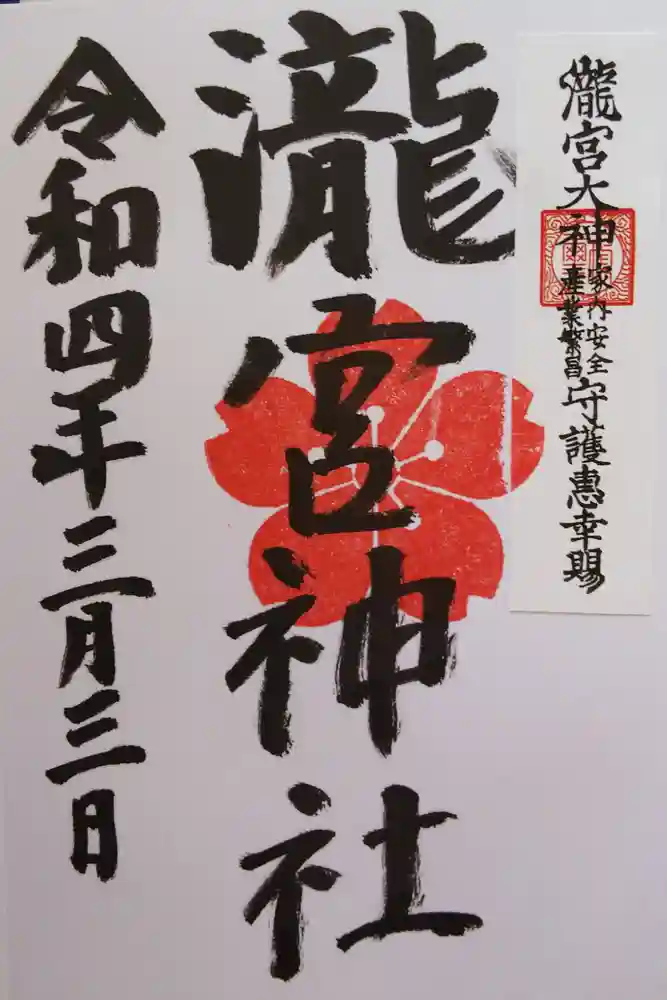 瀧宮大神家内安全産業繁昌守護恵幸賜
瀧宮神社
令和四年三月三日